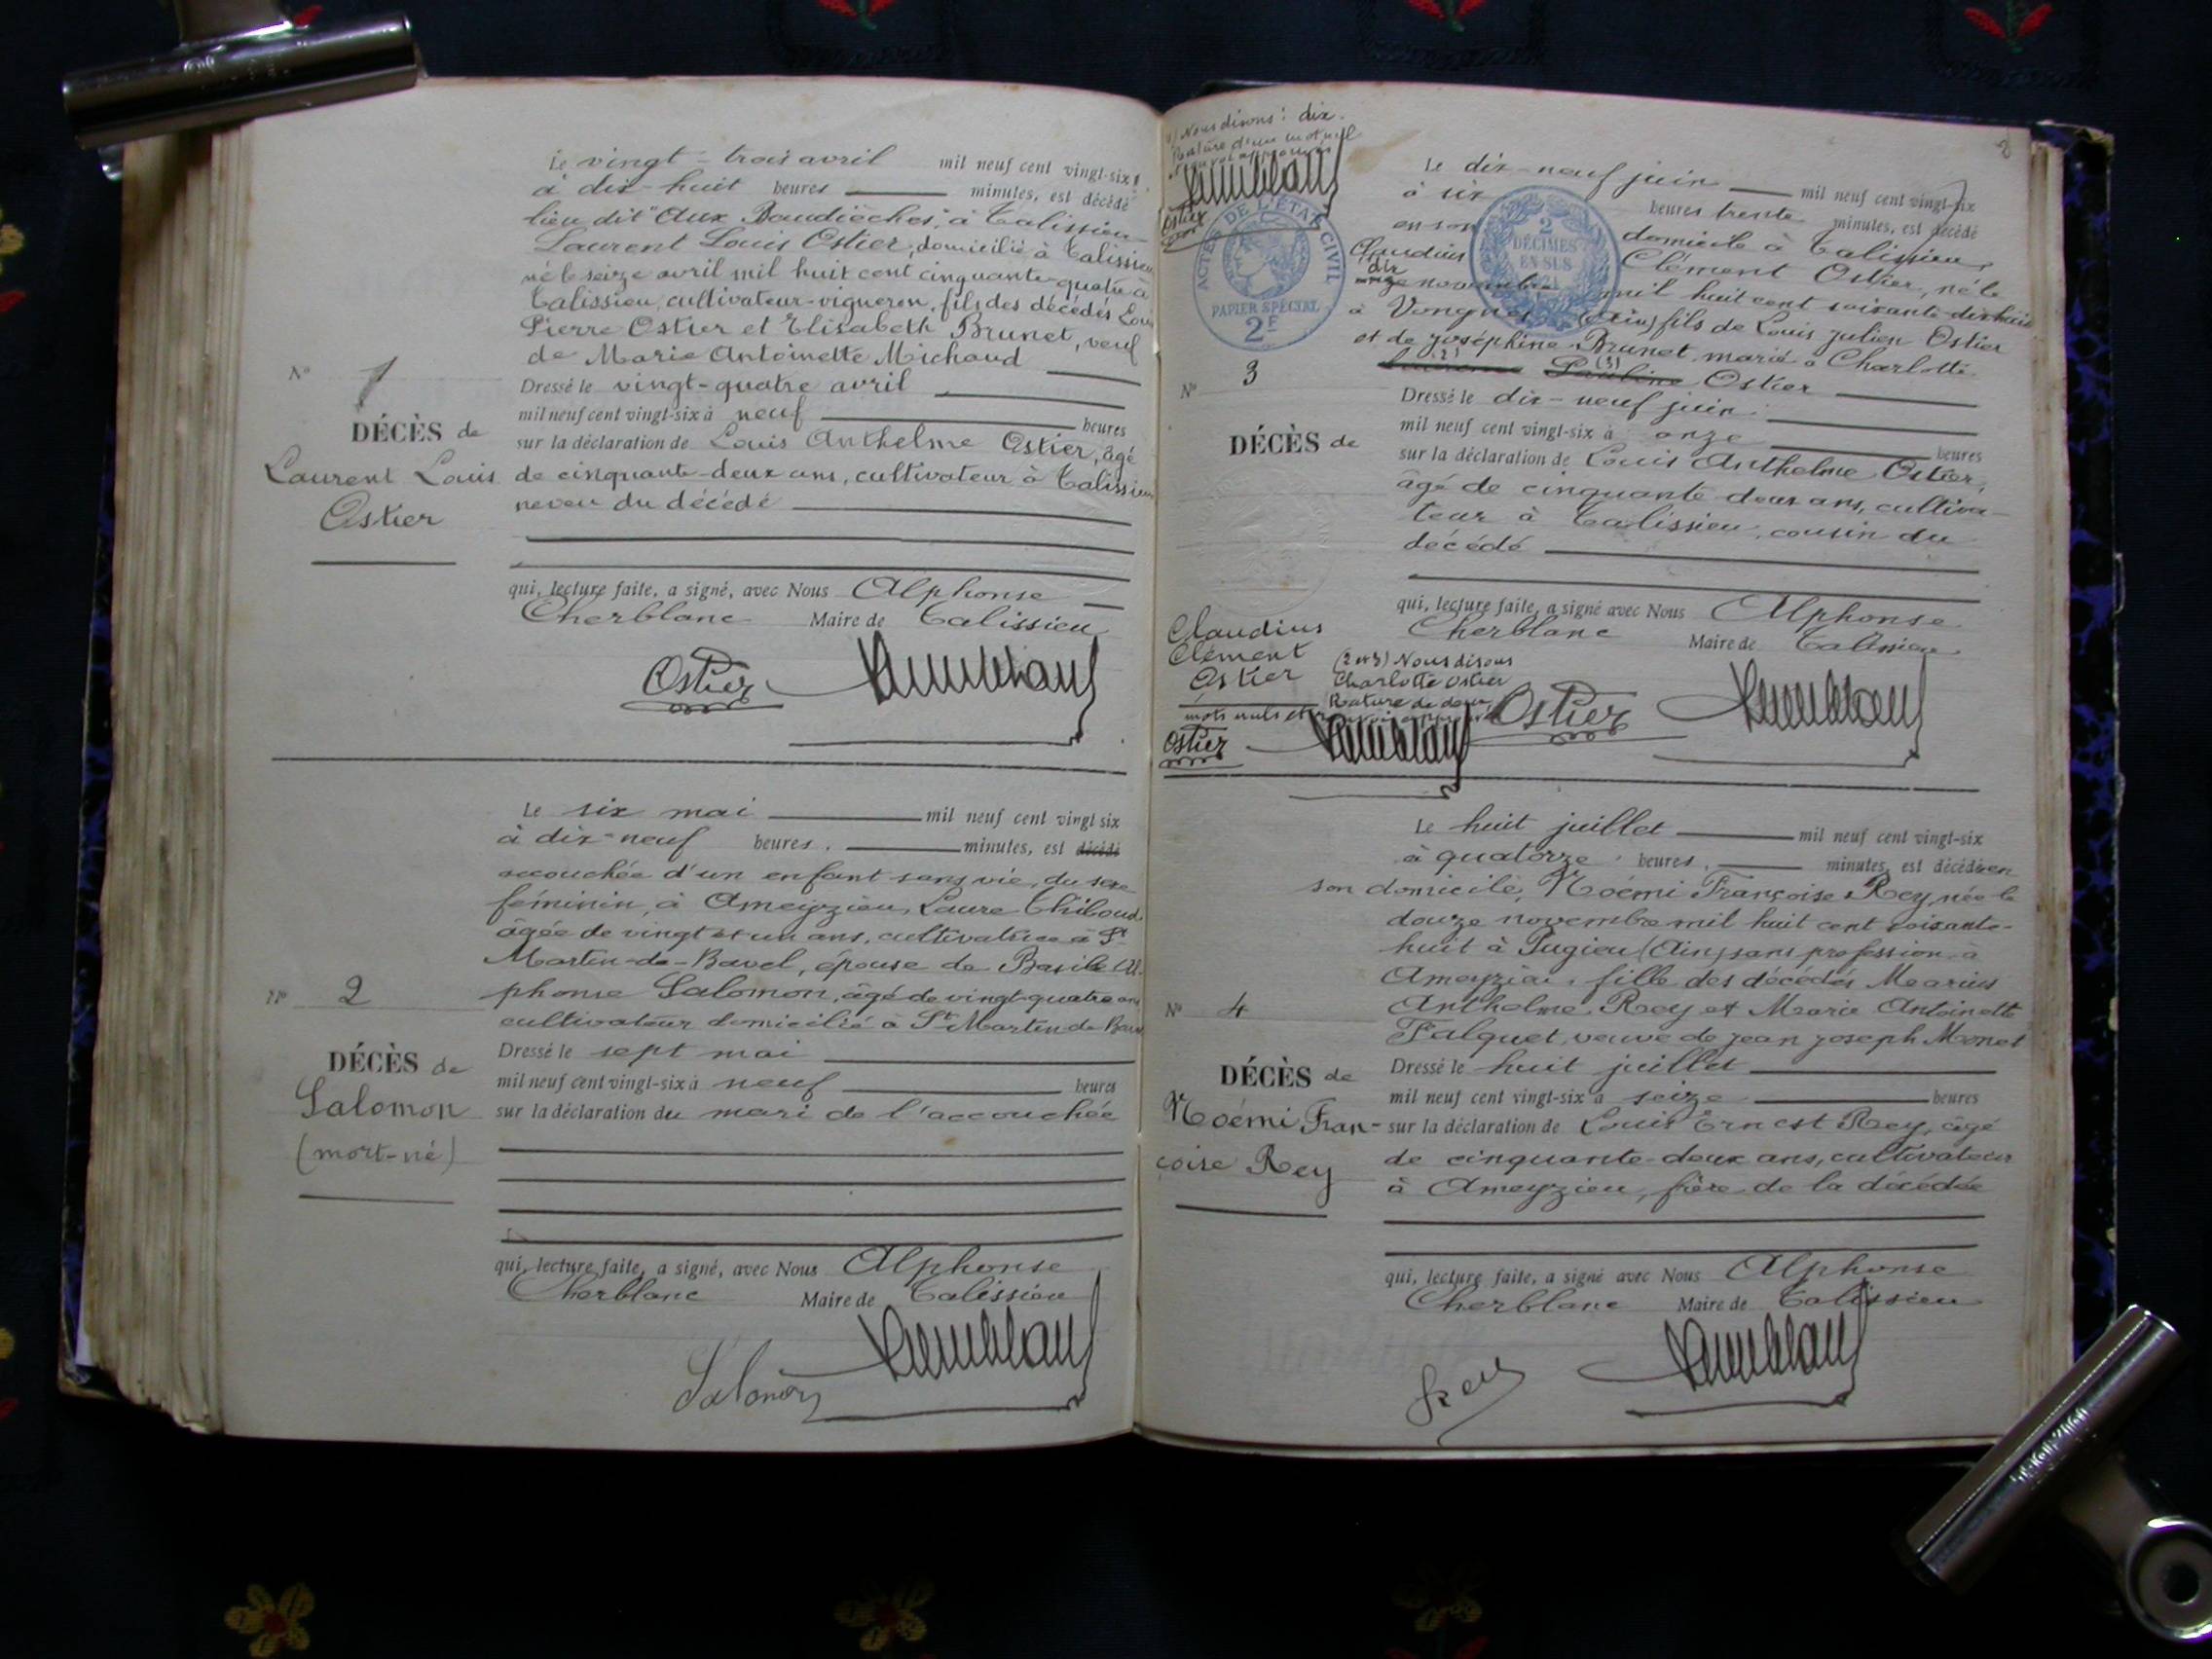 Le vingt-trois avril mil neuf cent vingt-six
à dix-huit heures minutes, est décédé
lieu dit "Aux Baudièches", à Talissieu
Laurent Louis Ostier, domicilié à Talissieu
né le seize avril mil huit cent cinquante-quatre à
Talissieu, cultivateur-vigneron, fils des décédés Louis
Pierre Ostier et Elisabeth Brunet, veuf
de Marie Antoinette Michaud
N° 1
Dressé le vingt-quatre avril
mil neuf cent vingt-six à neuf heures
DÉCÈS de
Laurent Louis
Ostier
sur la déclaration de Louis Anthelme Ostier, âgé
de cinquante-deux ans, cultivateur à Talissieu
neveu du décédé
qui, lecture faite, a signé, avec Nous Alphonse
Cherblanc Maire de Talissieu
Ostier
Le six mai mil neuf cent vingt six
à dix-neuf heures, minutes, est décédé
accouchée d'un enfant sans vie, du sexe
féminin, à Ameyzieu, Laure Thiboud
âgée de vingt et un ans, cultivatrice à St
Martin-de-Bavel, épouse de Basile Al-
phonse Salomon, âgé de vingt-quatre ans
cultivateur domicilié à St Martin de Bavel
N° 2
Dressé le sept mai
mil neuf cent vingt-six à neuf heures
DÉCÈS de
Salomon
(mort-né)
sur la déclaration du mari de l'accouchée
qui, lecture faite, a signé, avec Nous Alphonse
Cherblanc Maire de Talissieu
Salomon
8
(1) Nous disons : dix.
Rature d'un mot nul
Ostier
ACTES DE L'ÉTAT CIVIL
PAPIER SPÉCIAL
2F
2
DÉCIMES
EN SUS
Le dix-neuf juin mil neuf cent vingt-six
à six heures trente minutes, est décédé
en son domicile à Talissieu,
Claudius Clément Ostier, né le
dix
onze novembre mil huit cent soixante-dix-huit
à Vongnes (Ain) fils de Louis Julien Ostier
et de Joséphine Brunet, marié à Charlotte
(2) (3) Ostier
N° 3
Dressé le dix-neuf juin
mil neuf cent vingt-six à onze heures
DÉCÈS de
Claudius
Clément
Ostier
sur la déclaration de Louis Anthelme Ostier,
âgé de cinquante-deux ans, cultiva-
teur à Talissieu, cousin du
décédé
qui, lecture faite, a signé avec Nous Alphonse
Cherblanc Maire de Talissieu
(2 et 3) Nous disons
Charlotte Ostier
Rature de deux
mots nuls
Ostier
Ostier
Le huit juillet mil neuf cent vingt-six
à quatorze heures, minutes, est décédée en
son domicile, Noémi Françoise Rey, née le
douze novembre mil huit cent soixante-
huit à Pugieu (Ain) sans profession à
Ameyzieu, fille des décédés Marius
Anthelme Rey et Marie Antoinette
Falquet, veuve de Jean Joseph Monet
N° 4
Dressé le huit juillet
mil neuf cent vingt-six à seize heures
DÉCÈS de
Noémi Fran-
çoise Rey
sur la déclaration de Louis Ernest Rey, âgé
de cinquante-deux ans, cultivateur
à Ameyzieu, frère de la décédée
qui, lecture faite, a signé avec Nous Alphonse
Cherblanc Maire de Talissieu
Rey